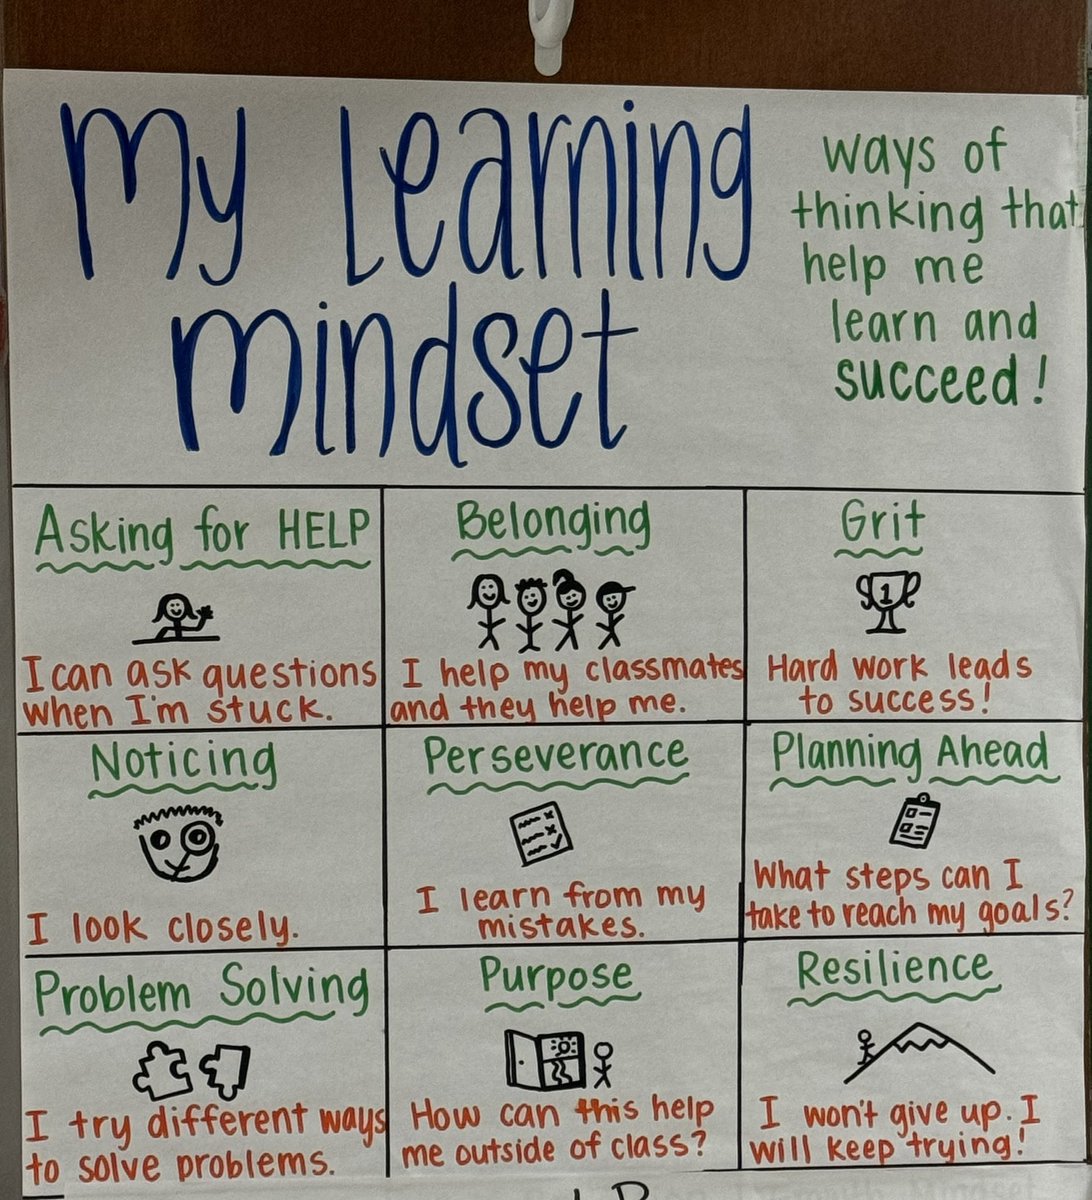 My Learning
mindset
ways of
thinking that
help me
learn and
succeed!
Asking for HELP
I can ask questions
when I'm stuck.
Belonging
I help my classmates
and they help me.
Grit
1
Hard work leads
to success!
Noticing
I look closely.
Perseverance
I learn from my
mistakes.
Planning Ahead
What steps can I
take to reach my goals?
Problem Solving
I try different ways
to solve problems.
Purpose
How can this help
me outside of class?
Resilience
I won't give up. I
will keep trying!